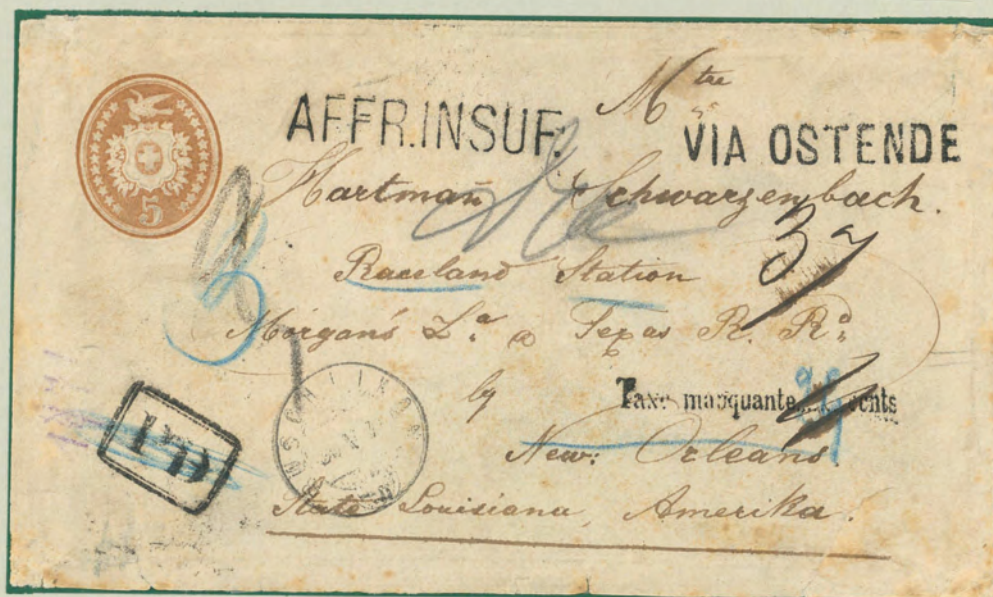 5
AFFR. INSUF.
Mtre
VIA OSTENDE
Hartman Schwarzenbach.
37
Raceland Station
Morgan's La. & Texas R. Rd.
by
Taxe manquante cents
New: Orleans.
P.D.
State Louisiana, Amerika.